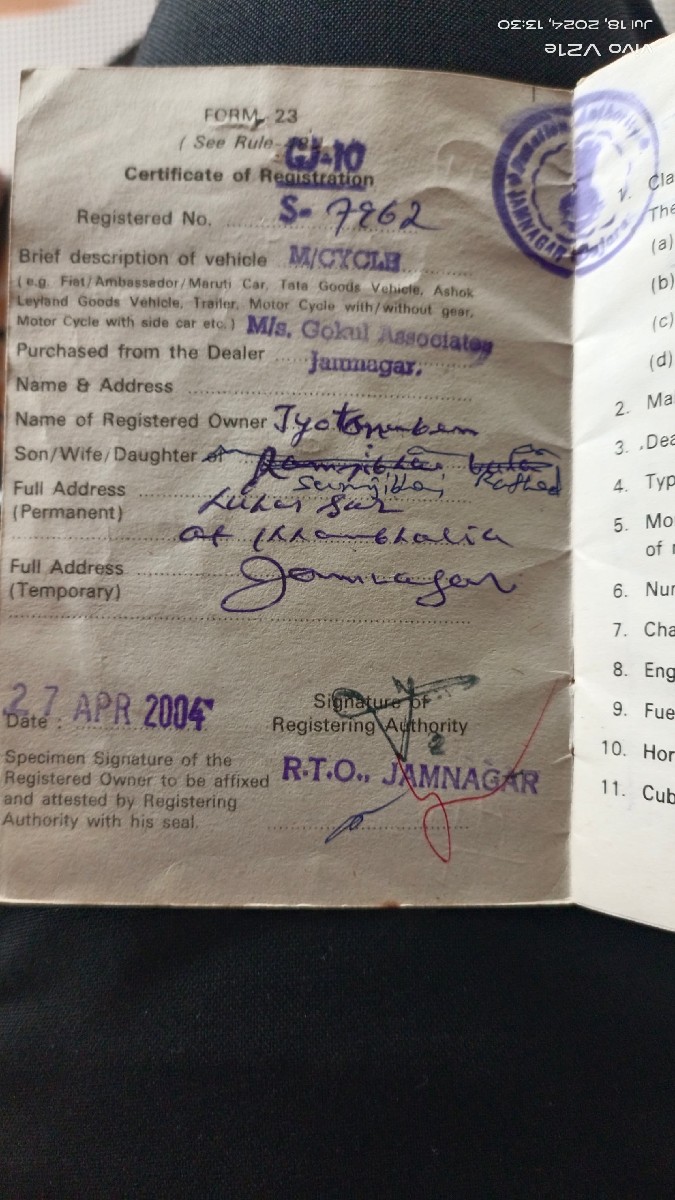 Jul 18, 2024, 13:30
vivo V21e
FORM 23
( See Rule
GJ-10
Certificate of Registration
Registered No. S- 7962
Brief description of vehicle M/CYCLE
( e.g. Fiat/Ambassador/Maruti Car, Tata Goods Vehicle, Ashok
Leyland Goods Vehicle, Trailer, Motor Cycle with/without gear,
Motor Cycle with side car etc. ) M/s. Gokul Associates
Purchased from the Dealer Jamnagar.
Name & Address
Name of Registered Owner
Son/Wife/Daughter of
Full Address
(Permanent)
at Khambhalia
Full Address Jamnagar
(Temporary)
Date : 27 APR 2004
Signature of
Registering Authority
R.T.O., JAMNAGAR
Specimen Signature of the
Registered Owner to be affixed
and attested by Registering
Authority with his seal.
JAMNAGAR
1. Cla
The
(a)
(b)
(c)
(d)
2. Ma
3. Dea
4. Typ
5. Mo
of
6. Nur
7. Cha
8. Eng
9. Fue
10. Hor
11. Cub